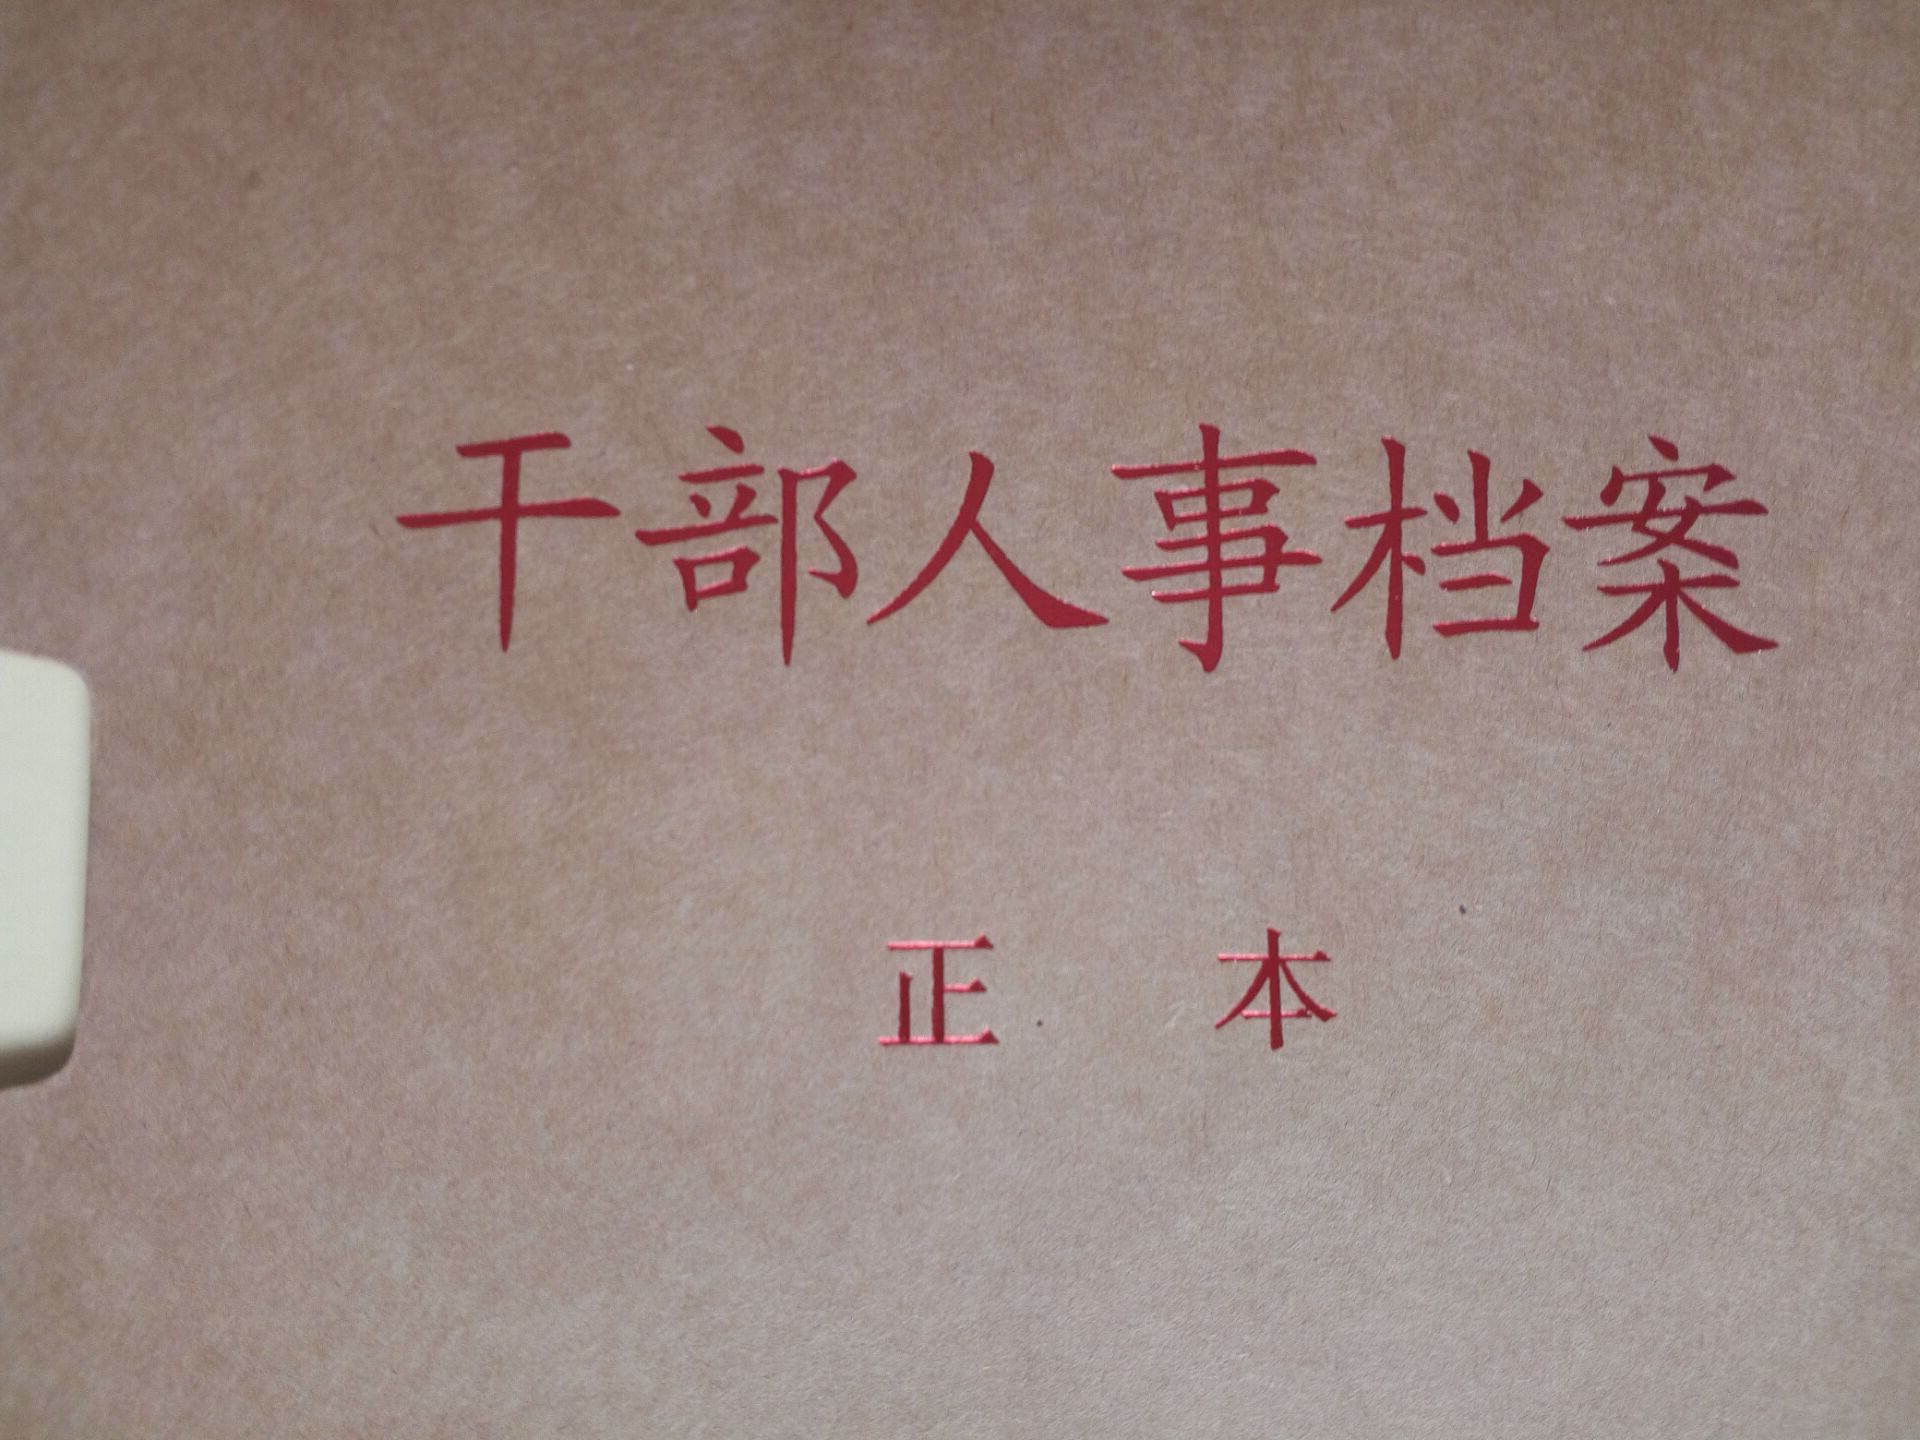 干部人事档案
正 本